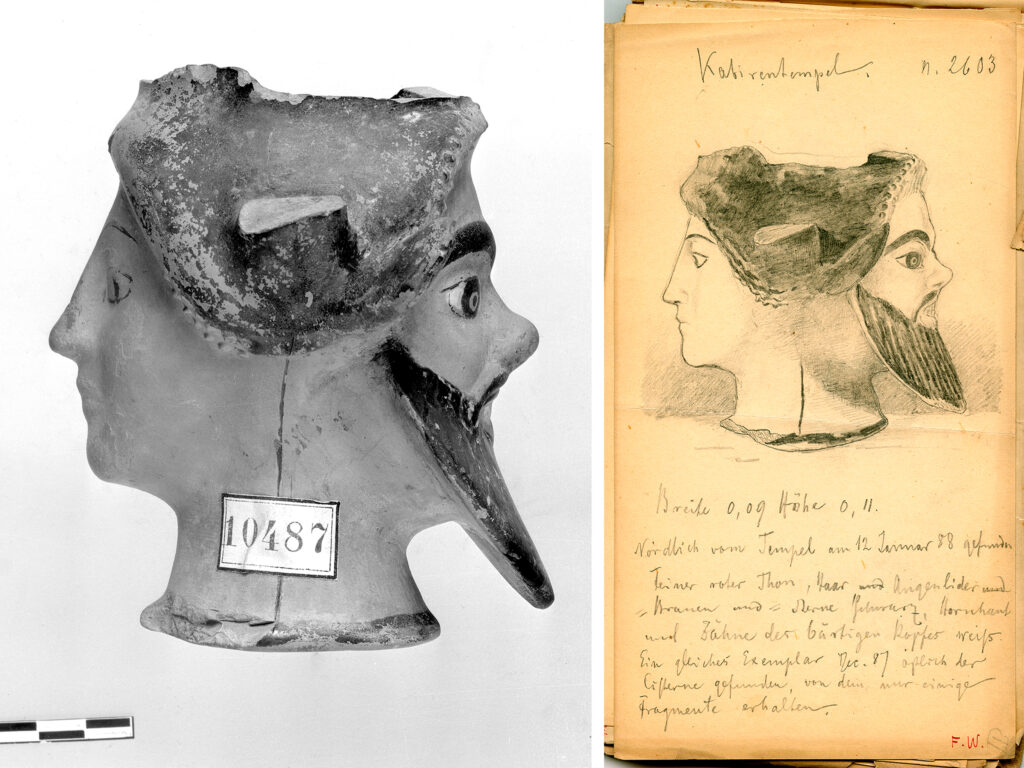 10487
Kabirentempel. n. 2603
Breite 0,09 Höhe 0,11.
Nördlich vom Tempel am 12 Januar 88 gefunden
Feiner roter Thon, Haar und Augenlider und
= Brauen und = Sterne Schwarz, Hornhaut
und Zähne des bärtigen Kopfes weiß
Ein gleiches Exemplar Dec. 87 östlich der
Cisterne gefunden, von dem nur einige
Fragmente erhalten.
F. W.